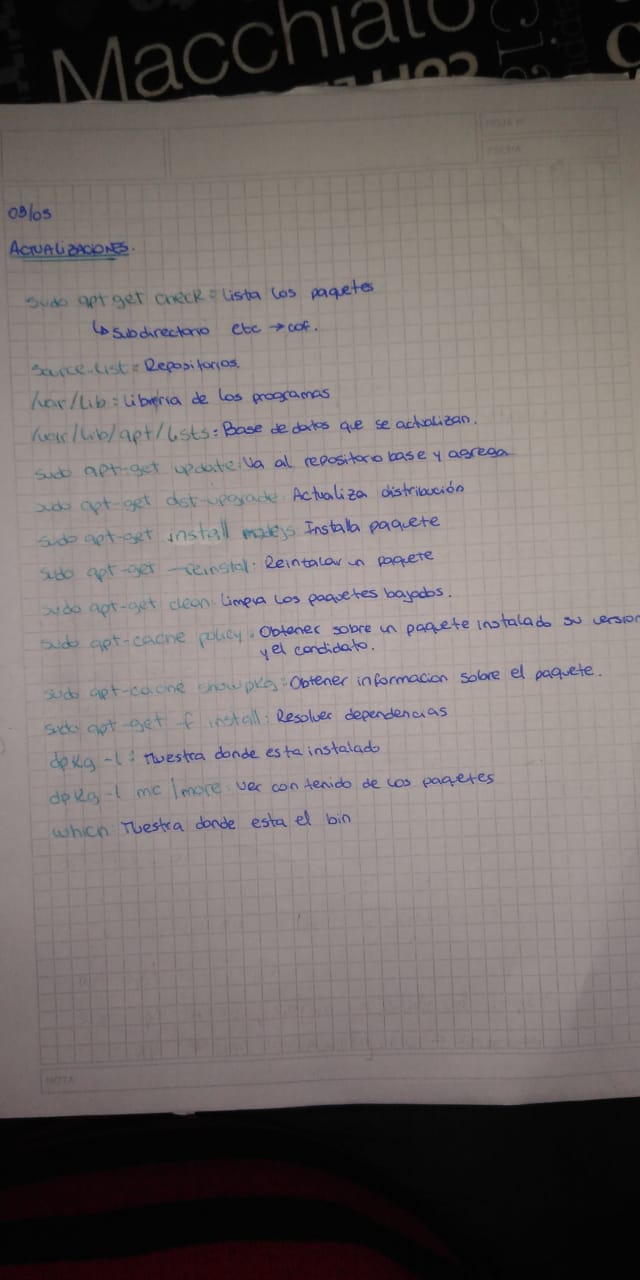 Macchiato
HOJA Nº
FECHA
09/05
ACTUALIZACIONES.
sudo apt get check = Lista los paquetes
↳ subdirectorio etc → cof.
source-list = Repositorios.
/var/lib = Libreria de los programas
/var/lib/apt/lists: Base de datos que se actualizan.
sudo apt-get update: Va al repositorio base y agrega
sudo apt-get dist-upgrade: Actualiza distribución
sudo apt-get install Installa paquete
sudo apt-get -reinstal: Reintalar un paquete
sudo apt-get clean: Limpia los paquetes bajados.
sudo apt-cache policy: Obtener sobre un paquete instalado su version
y el candidato.
sudo apt-cache showpkg: Obtener informacion sobre el paquete.
sudo apt-get -f install: Resolver dependencias
dpkg -l: Muestra donde esta instalado
dpkg -l mc |more: ver contenido de los paqetes
which: Muestra donde esta el bin
NOTA